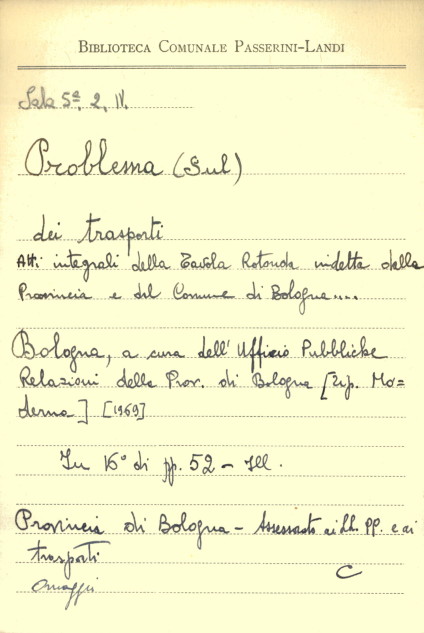 BIBLIOTECA COMUNALE PASSERINI-LANDI
Sala 5ª. 2. IV.
Problema (Sul)
dei trasporti
Atti integrali della Tavola Rotonda indetta dalla
Provincia e dal Comune di Bologna....
Bologna, a cura dell' Ufficio Pubbliche
Relazioni della Prov. di Bologna [Tip. Mo=
derna] [1969]
In 16° di pp. 52 - Ill.
Provincia di Bologna - Assessorato ai LL. PP. e ai
trasporti
C
Omaggio